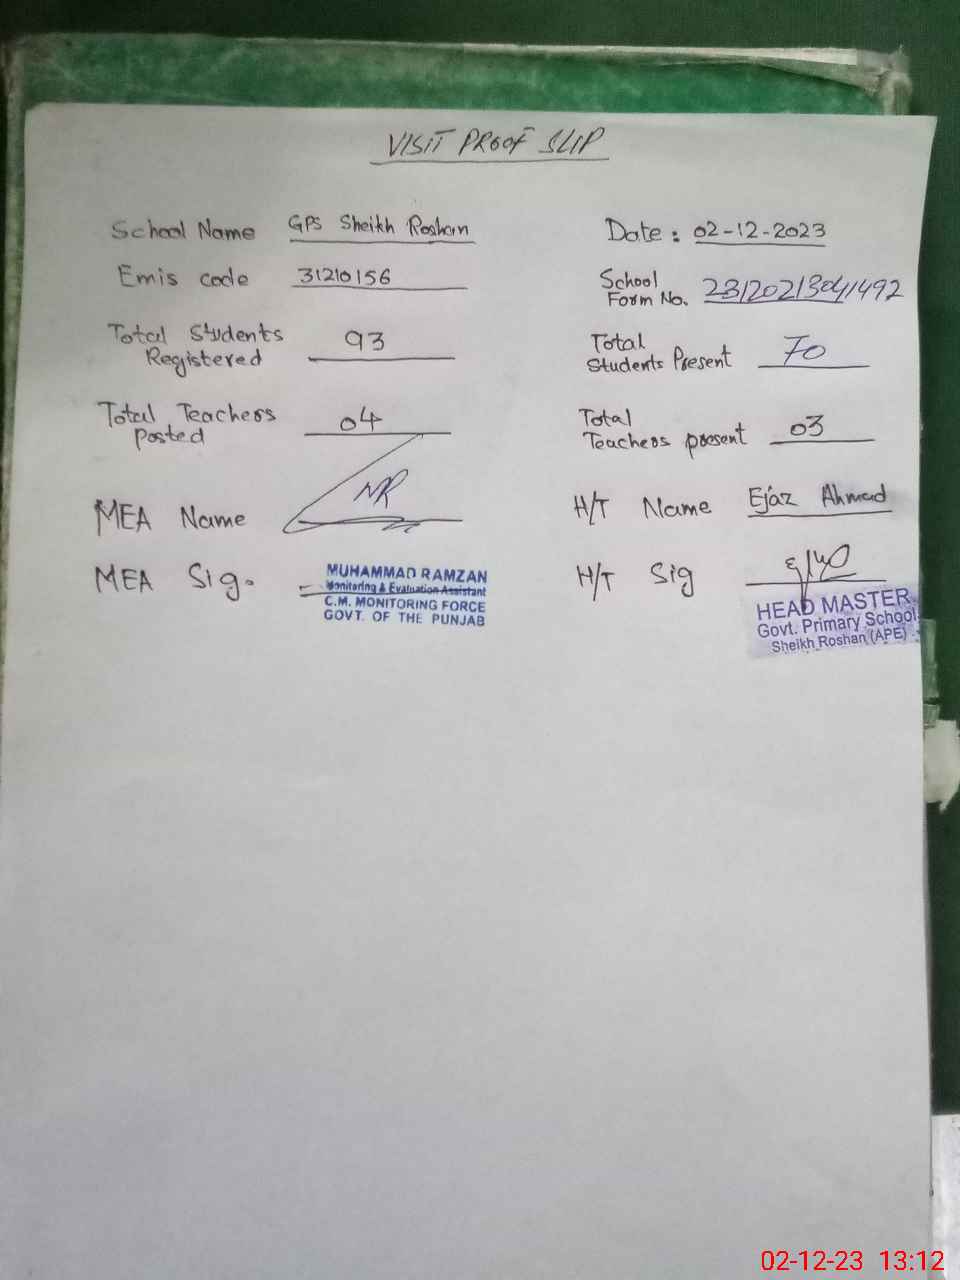 VISIT PROOF SLIP
School Name GPS Sheikh Roshan Date: 02-12-2023
Emis code 31210156 School Form No. 23120213041492
Total Students Registered 93 Total Students Present 70
Total Teachers Posted 04 Total Teachers present 03
MEA Name MR H/T Name Ejaz Ahmad
MEA Sig. H/T Sig
MUHAMMAD RAMZAN
Monitoring & Evaluation Assistant
C.M. MONITORING FORCE
GOVT. OF THE PUNJAB
HEAD MASTER
Govt. Primary School
Sheikh Roshan (APE)
02-12-23 13:12